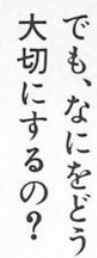 でも、なにをどう
大切にするの？